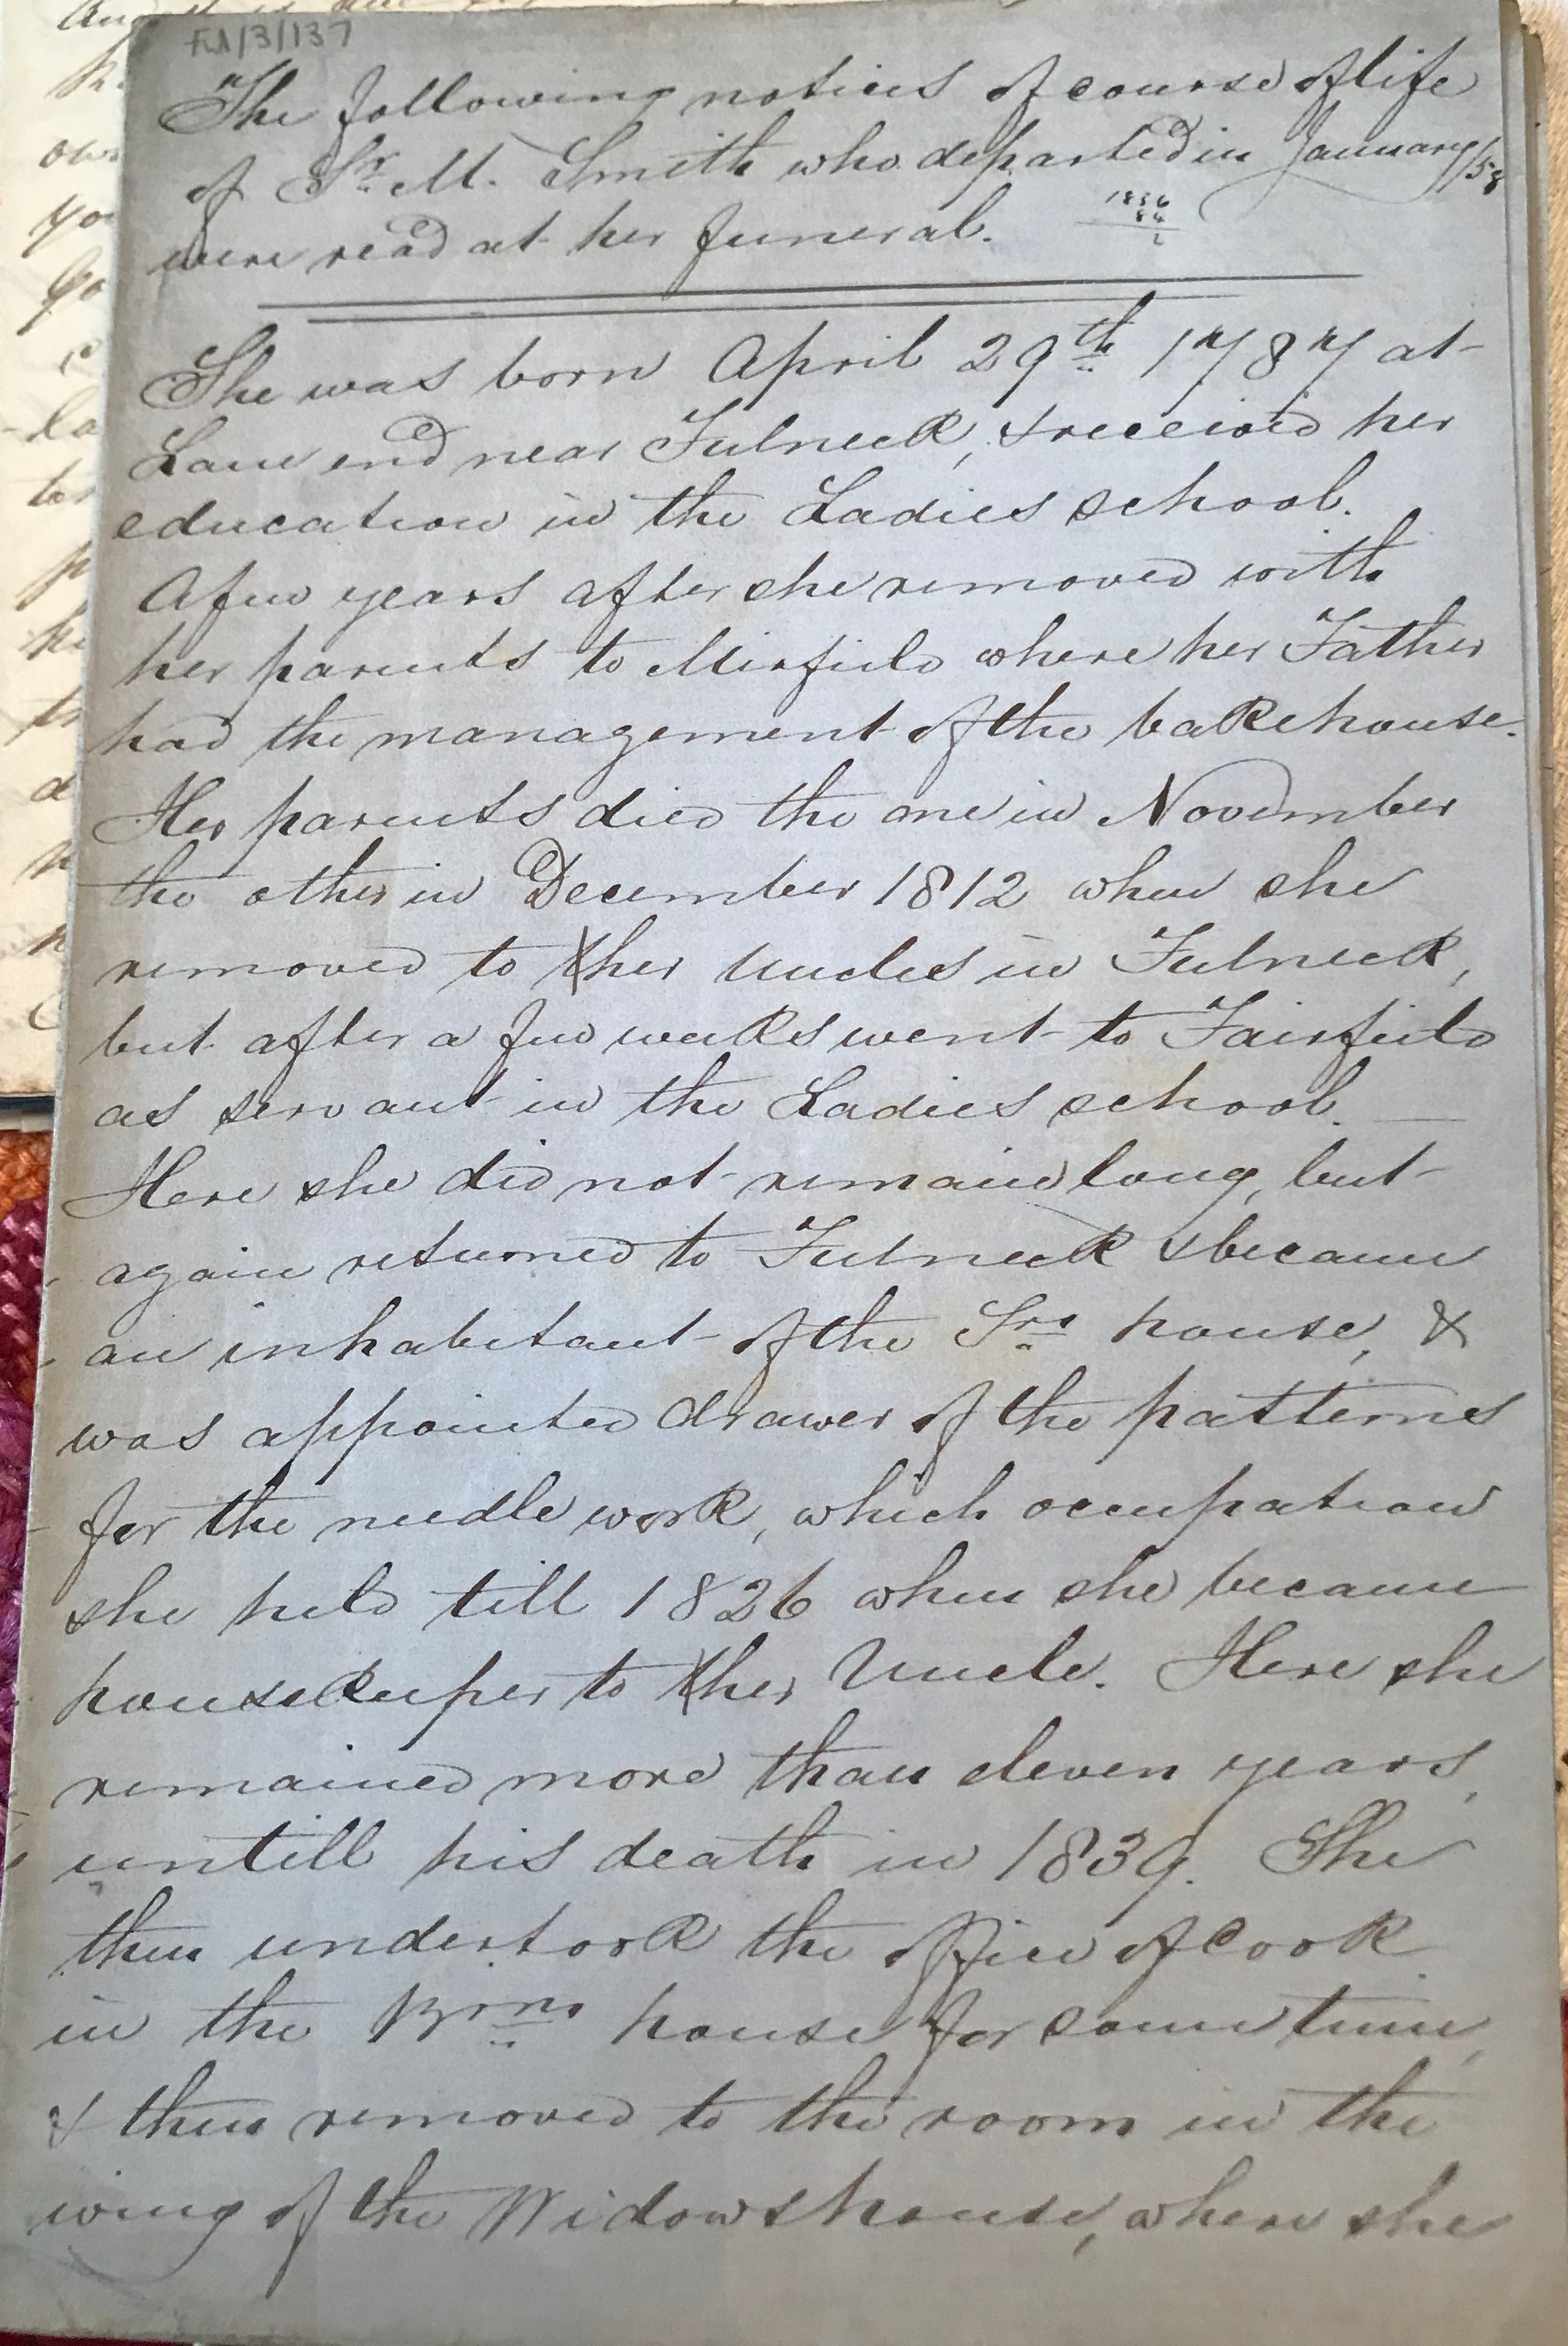 FU/3/137
The following notices of course of life
of Sr. M. Smith who departed in January /58
were read at her funeral.
1836
84
She was born April 29th 1787 at
Lane end near Fulneck, & received her
education in the Ladies school.
A few years after she removed with
her parents to Mirfield where her Father
had the management of the bakehouse.
Her parents died the one in November
the other in December 1812 when she
removed to ther Uncles in Fulneck,
but after a few weeks went to Fairfield
as servant in the Ladies school.
Here she did not remain long, but
again returned to Fulneck & became
an inhabitant of the Srs house, &
was appointed drawer of the patterns
for the needle work, which occupation
she held till 1826 when she became
housekeeper to ther Uncle. Here she
remained more than eleven years,
untill his death in 1839. She
then undertook the office of cook
in the Brns house for some time,
& then removed to the room in the
wing of the Widows house, where she